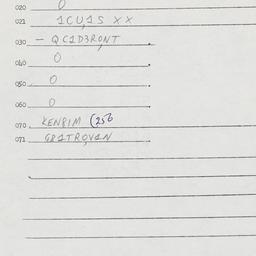 020 0
021 1CU1S XX
030 - QC1D3RONT
040 0
050 0
060 0
070 KEN8IM (256
071 G81TROV1N